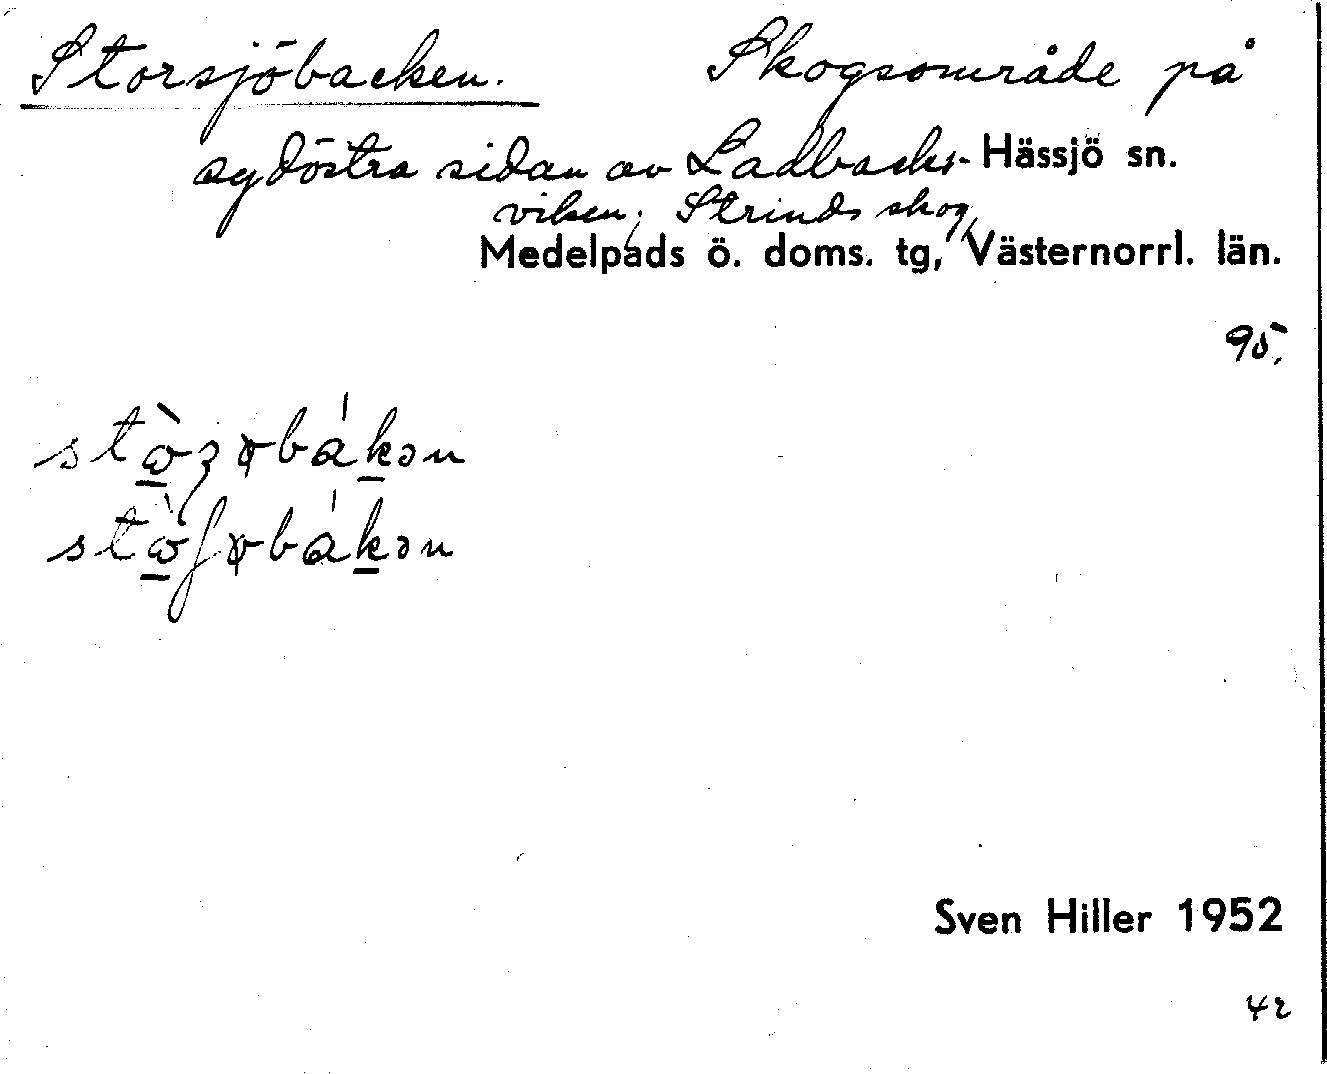 Storsjöbacken. Skogsområde på
sydöstra sidan av Ladbacks- Hässjö sn.
viken; Strinds skog,
Medelpads ö. doms. tg, Västernorrl. län.
95.
Sven Hiller 1952
42